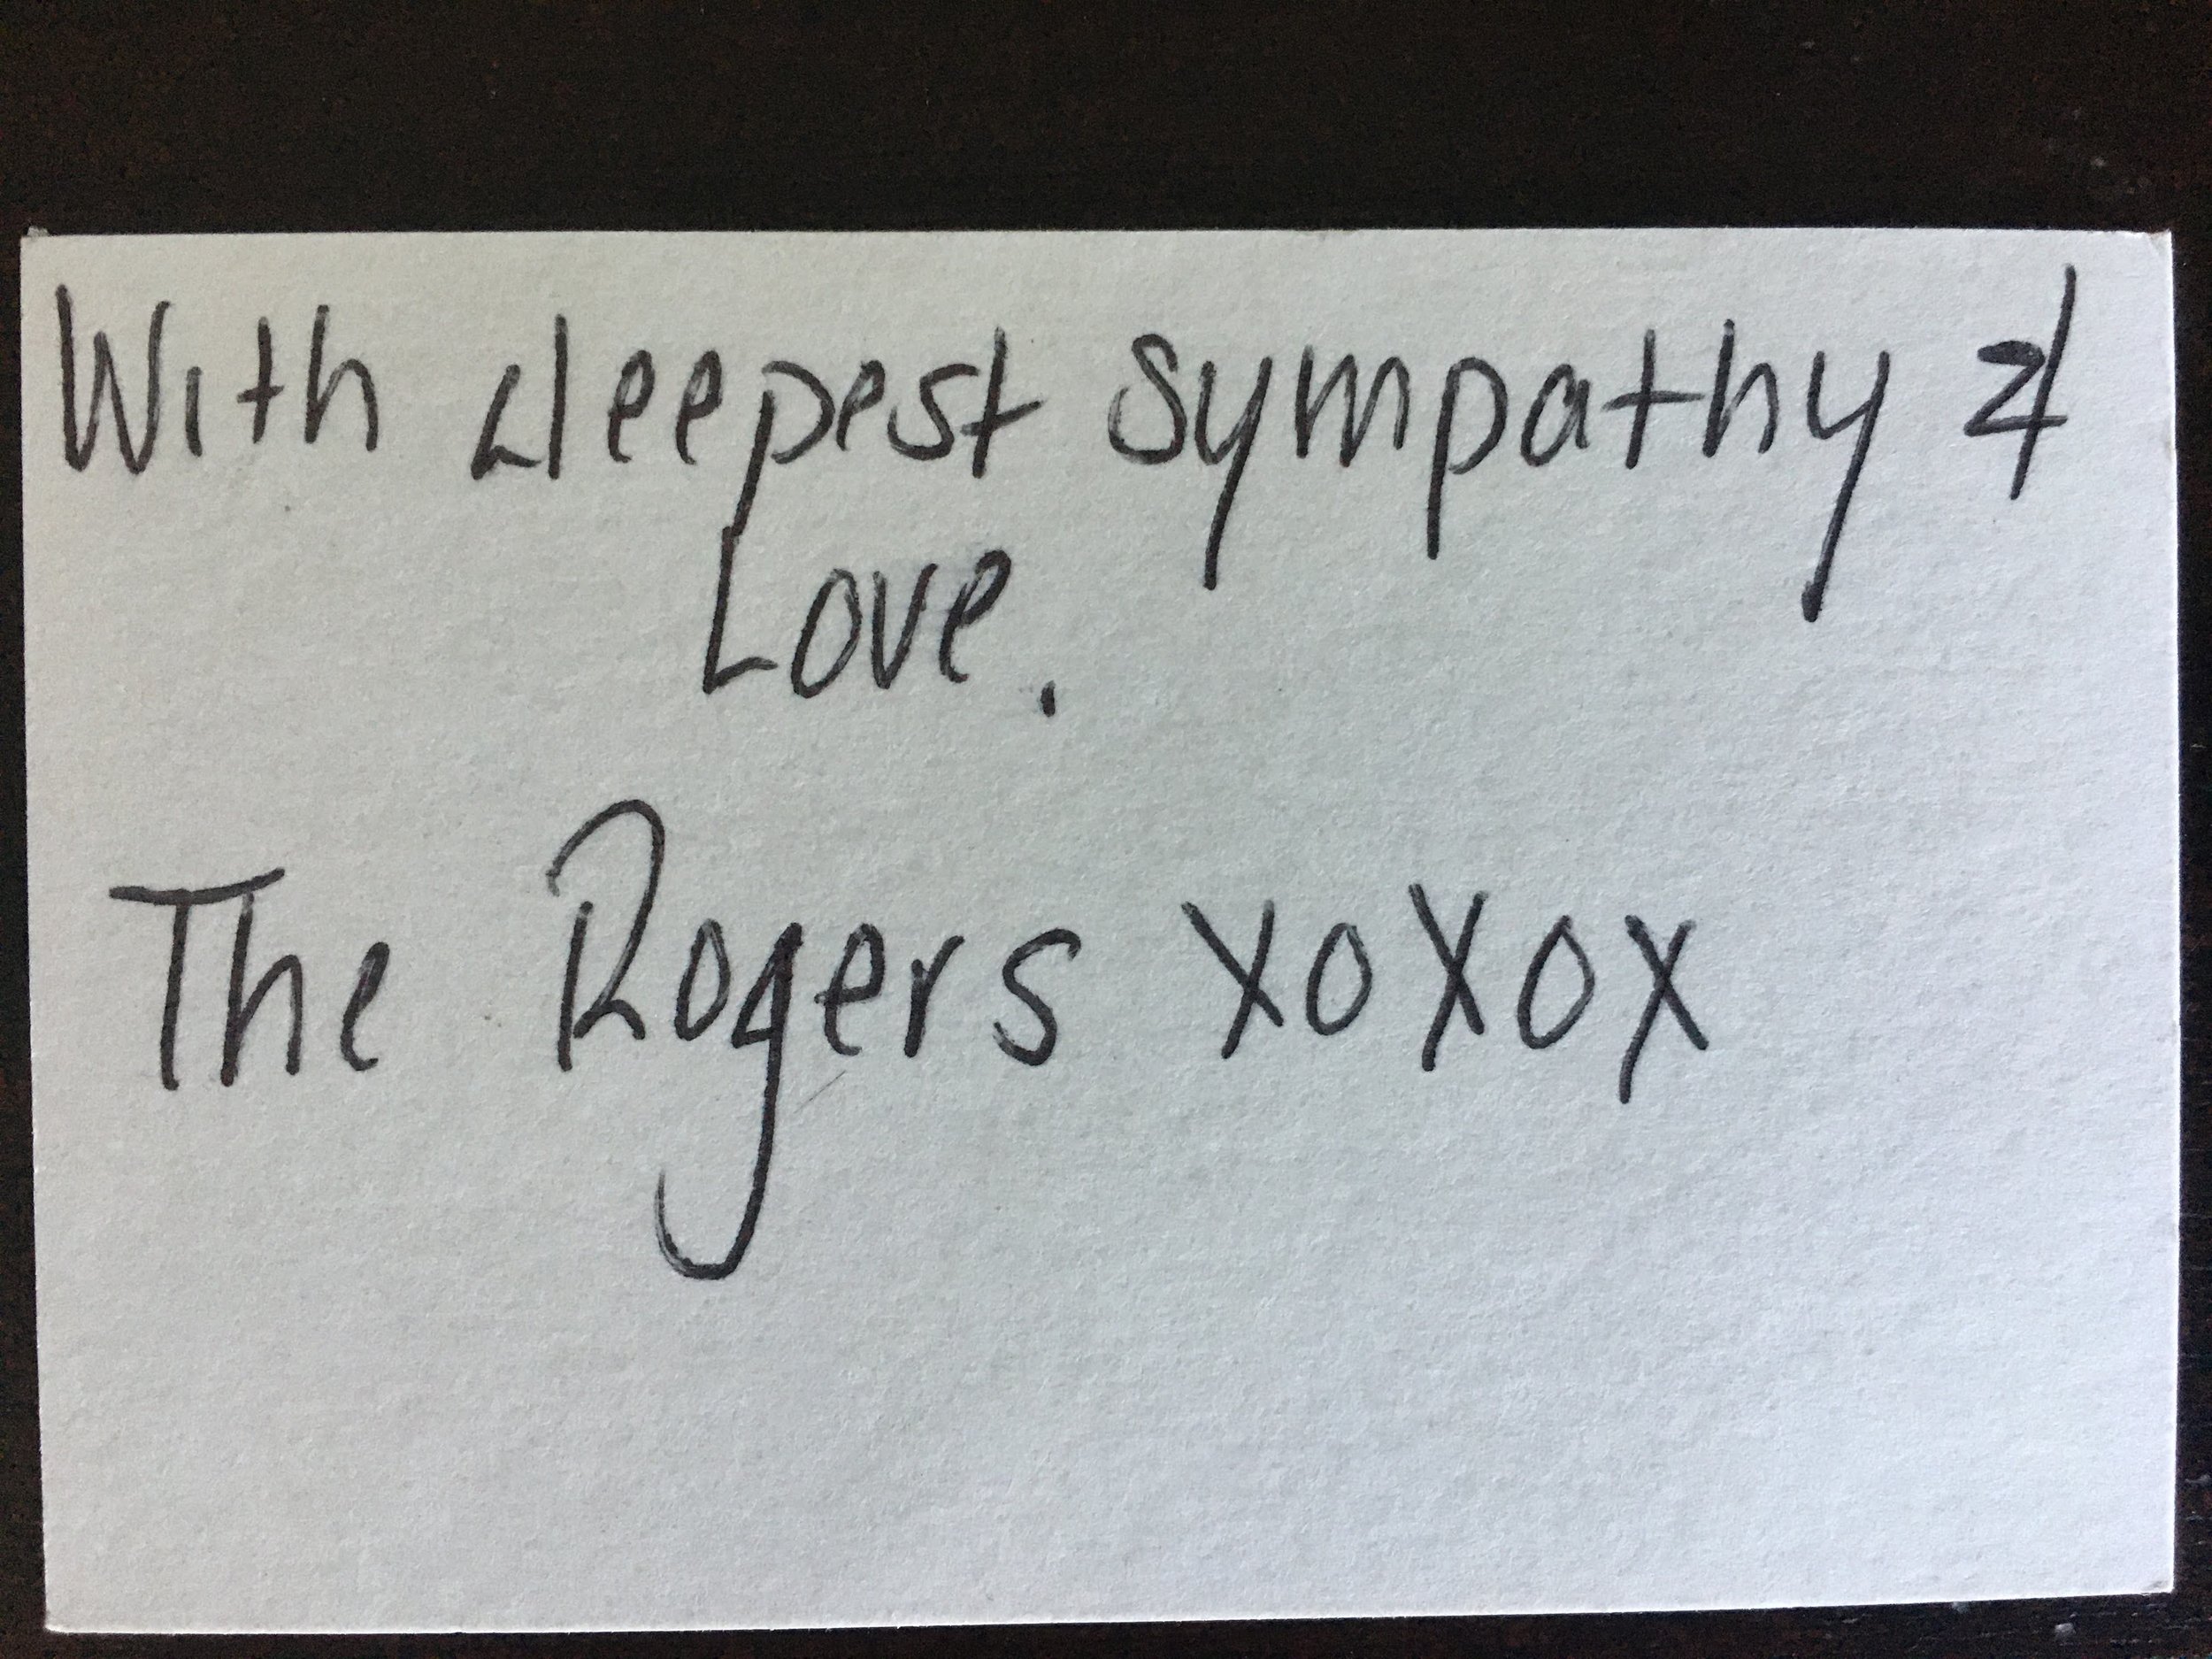 With deepest sympathy &
Love.
The Rogers xoxox